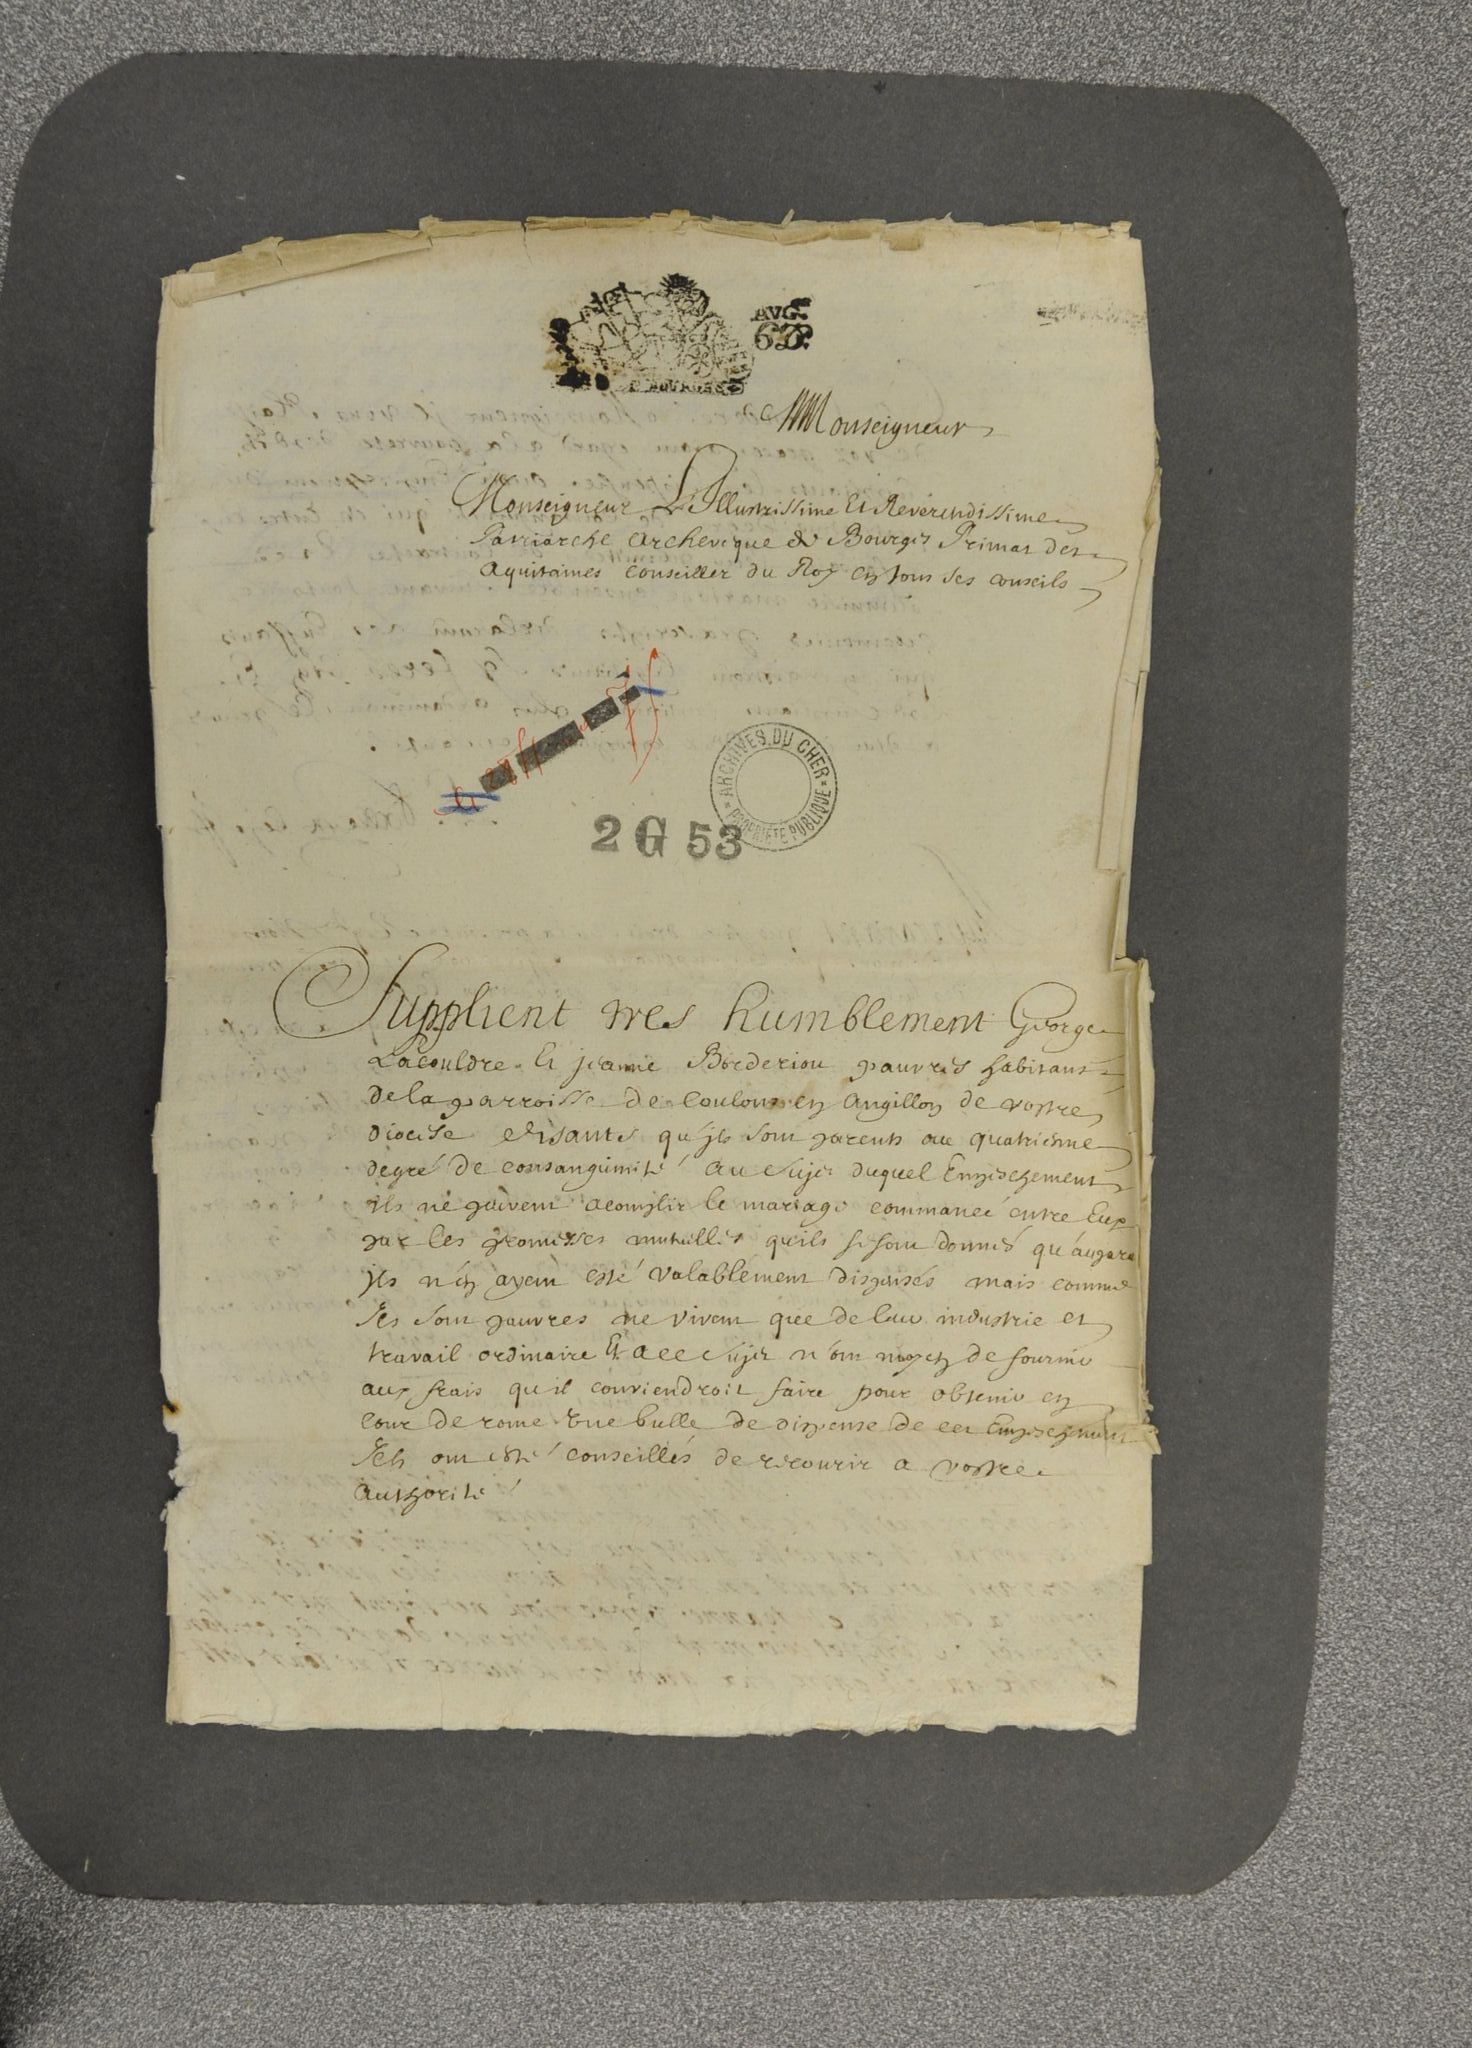 AVG.
Monseigneur
Monseigneur L'Illustrissime Et Reverendissime
Patriarche archevêque de Bourges Primat des
aquitaines conseiller du Roy en tous ses conseils
ARCHIVES DU CHER
PROPRIÉTÉ PUBLIQUE
2 G 53
Supplient tres humblement George
Lacouldre Et jeanne Borderiou pauvres habitans
de la parroisse de Coulons en Angillon de vostre
diocese disants qu'ils sont parents au quatriesme
degré de consanguinité au sujet duquel Empeschement
ils ne peuvent acomplir le mariage commancé entre Eux
par les promesses mutuelles qu'ils se sont donnés qu'aupara
ils n'en ayent esté valablement dispensés mais comme
Ils sont pauvres ne vivent que de leur industrie et
travail ordinaire Et a ce sujet n'ont moyen de fournir
aux frais qu'il conviendroit faire pour obtenir en
cour de rome une bulle de dispense de cet Empeschement
Ils ont esté conseillés de recourir a vostre
authorité